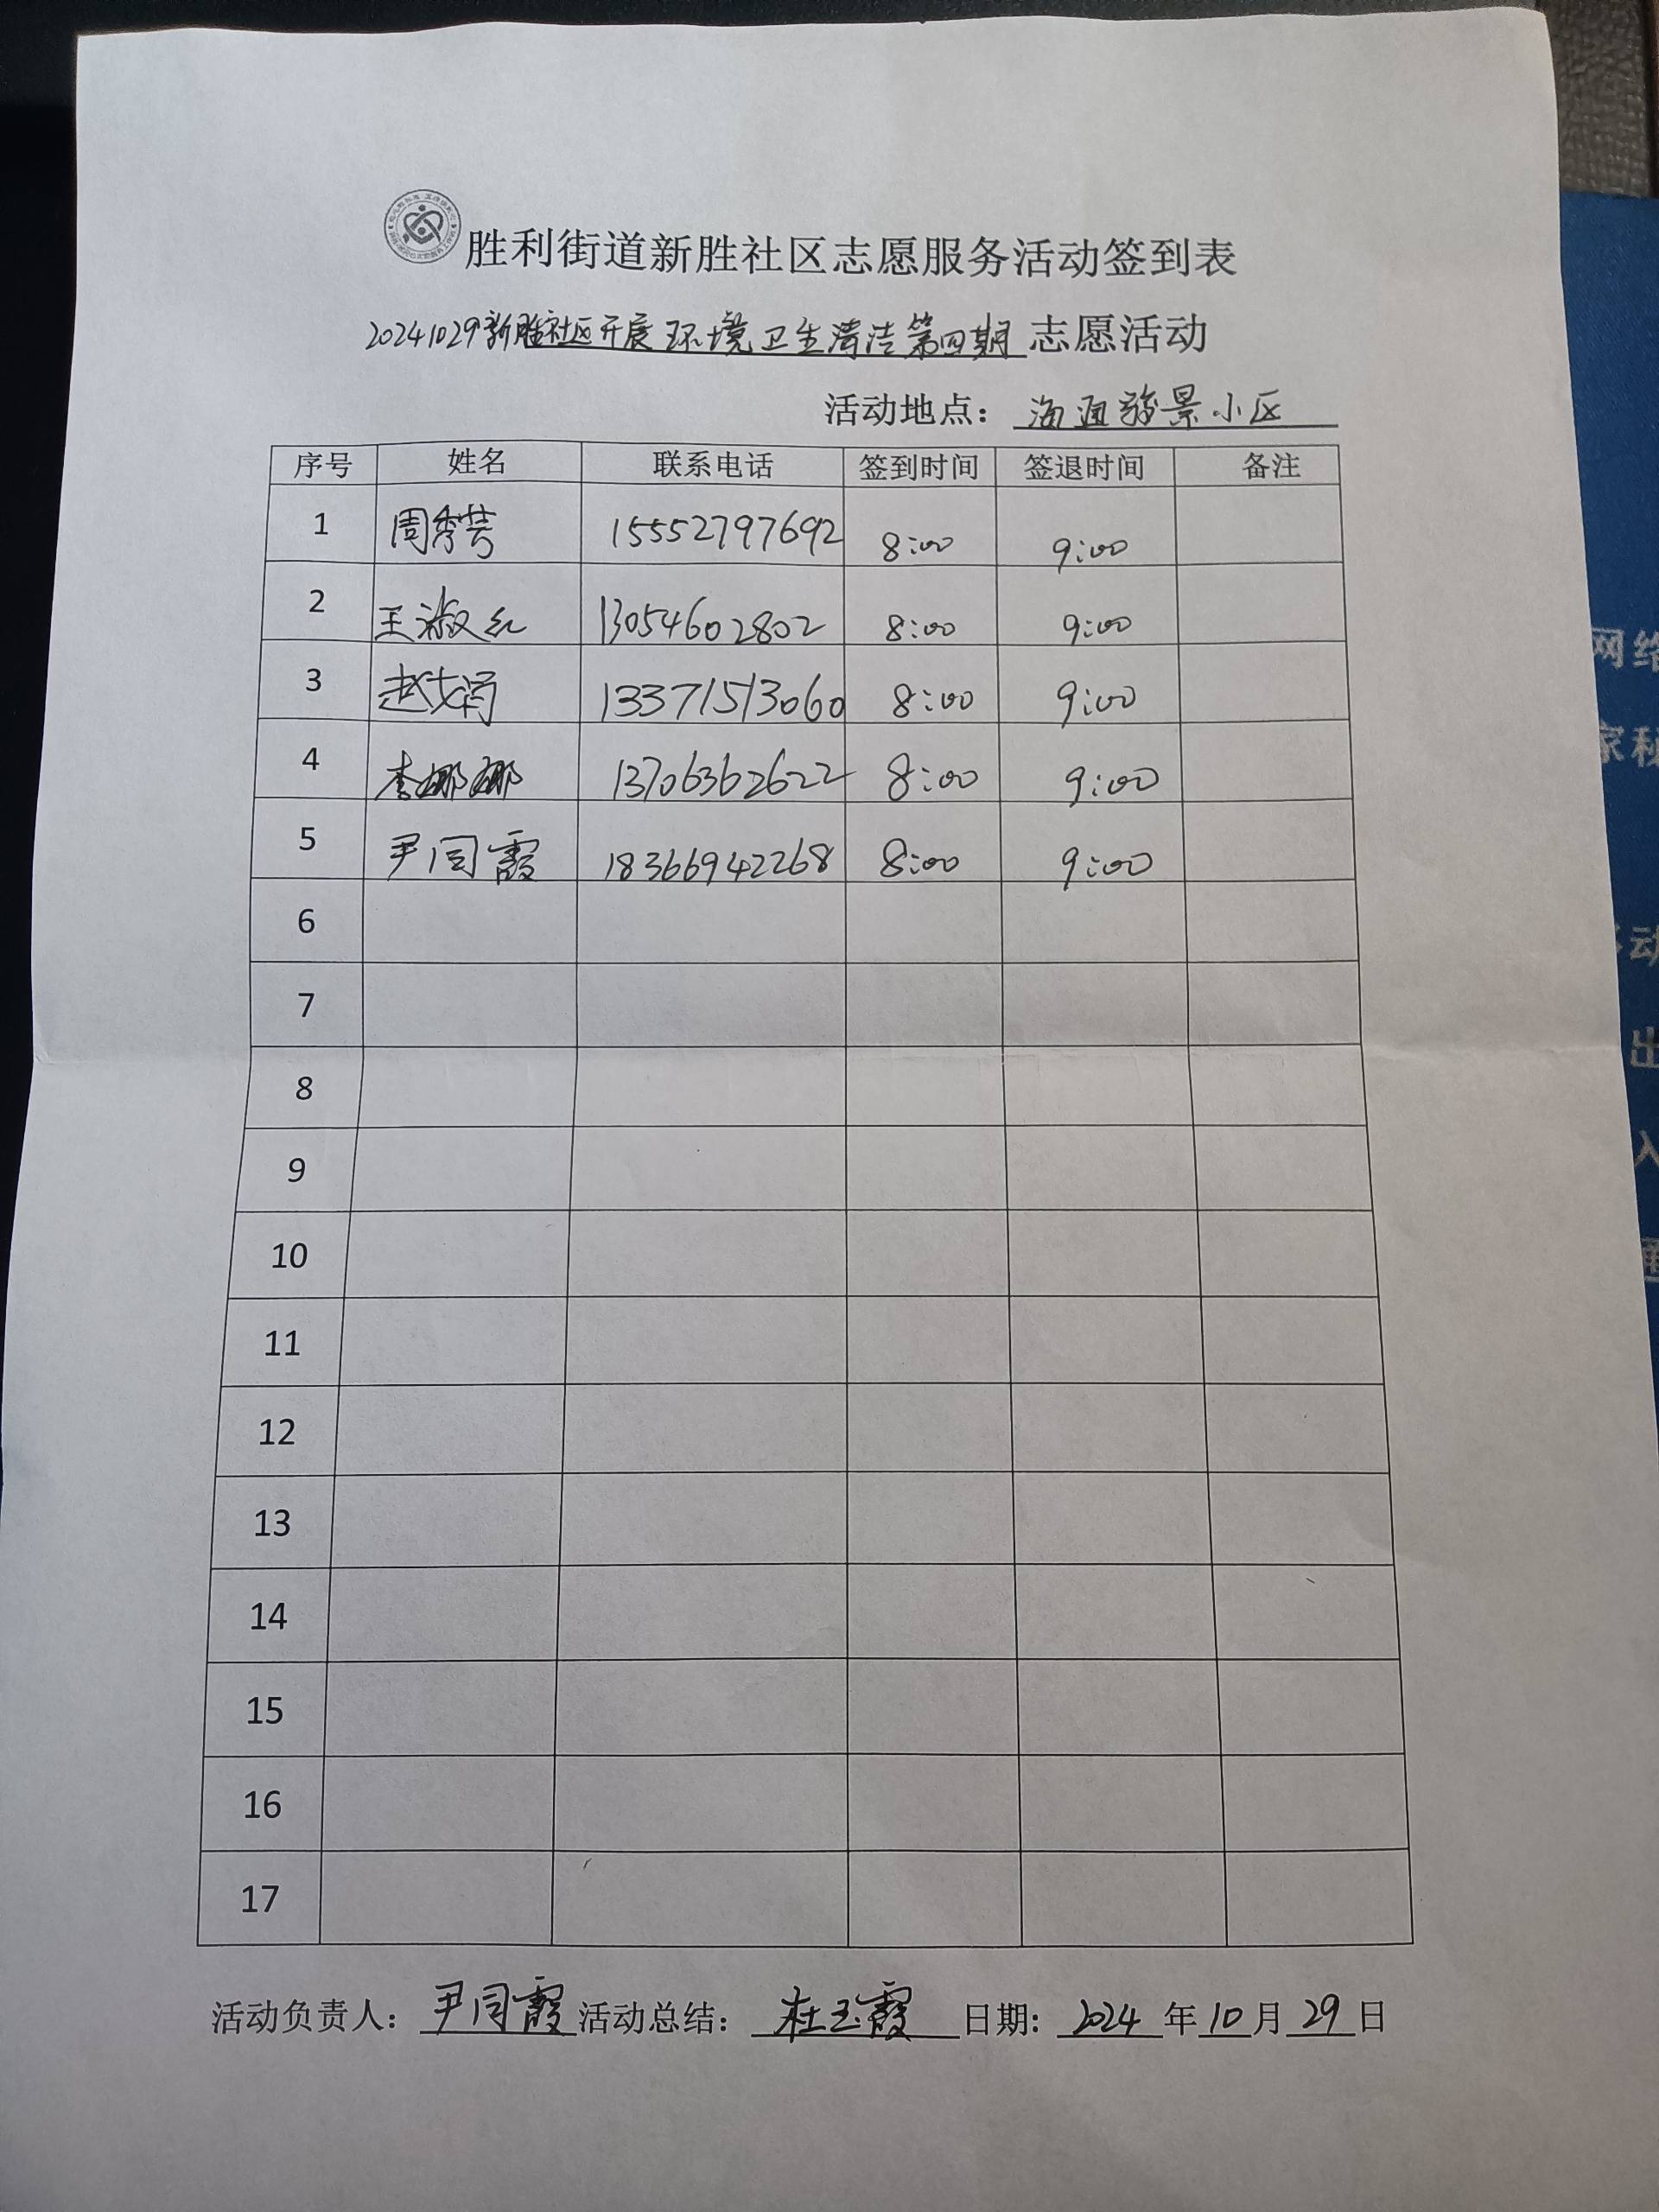 胜利街道新胜社区志愿服务活动签到表
20241029新胜社区开展环境卫生清洁第四期志愿活动
活动地点：海通骏景小区
序号 姓名 联系电话 签到时间 签退时间 备注
1 周秀芸 15552797692 8:00 9:00
2 王淑红 13054602802 8:00 9:00
3 赵文娟 13371513060 8:00 9:00
4 李娜娜 13706362622 8:00 9:00
5 尹同霞 18366942268 8:00 9:00
6
7
8
9
10
11
12
13
14
15
16
17
活动负责人：尹同霞 活动总结：杜玉霞 日期：2024年10月29日
网络
家秘
动
出
入